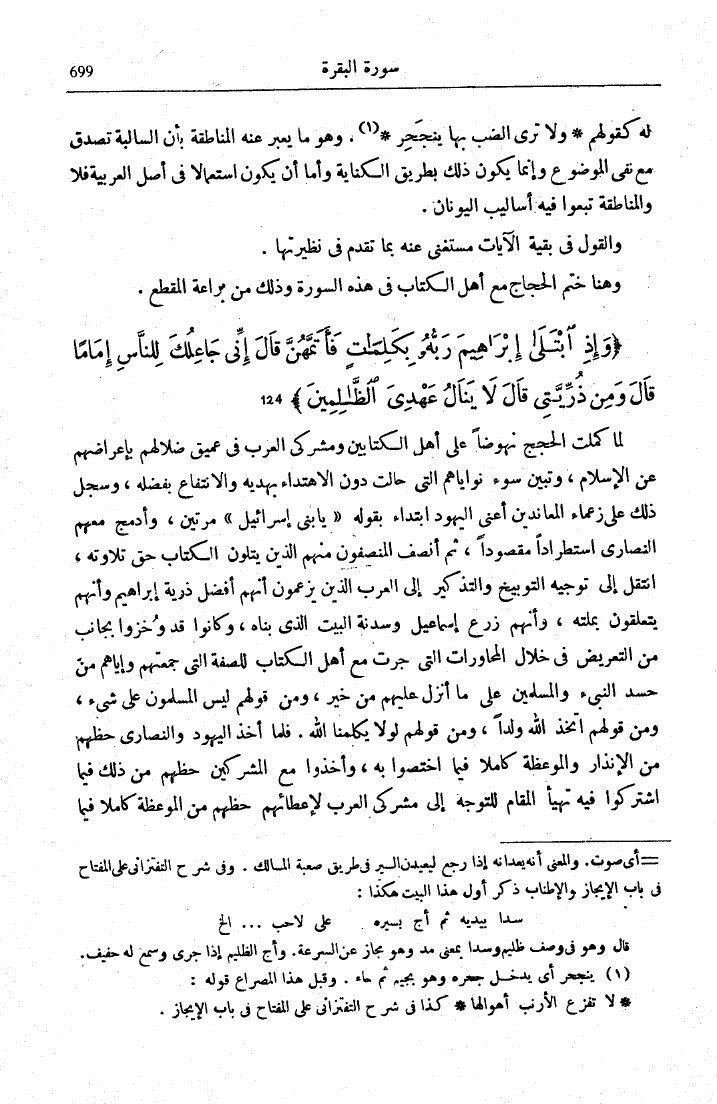 699 سورة البقرة
له كقولهم * ولا ترى الضب بها ينجحر *(١) ، وهو ما يعبر عنه المناطقة بأن السالبة تصدق
مع نفى الموضوع وإنما يكون ذلك بطريق الكناية وأما أن يكون استعمالا فى أصل العربية فلا
والمناطقة تبعوا فيه أساليب اليونان .
والقول فى بقية الآيات مستغنى عنه بما تقدم فى نظيرتها .
وهنا ختم الحجاج مع أهل الكتاب فى هذه السورة وذلك من براعة المقطع .
﴿وَإِذِ ٱبْتَلَىٰٓ إِبْرَٰهِيمَ رَبُّهُۥ بِكَلِمَٰتٍ فَأَتَمَّهُنَّ قَالَ إِنِّى جَاعِلُكَ لِلنَّاسِ إِمَامًا
قَالَ وَمِن ذُرِّيَّتِى قَالَ لَا يَنَالُ عَهْدِى ٱلظَّٰلِمِينَ﴾ 124
لما كملت الحجج نهوضاً على أهل الكتابين ومشركى العرب فى عميق ضلالهم بإعراضهم
عن الإسلام ، وتبين سوء نواياهم التى حالت دون الاهتداء بهديه والانتفاع بفضله ، وسجل
ذلك على زعماء المعاندين أعنى اليهود ابتداء بقوله « يابنى إسرائيل » مرتين ، وأدمج معهم
النصارى استطراداً مقصوداً ، ثم أنصف المنصفون منهم الذين يتلون الكتاب حق تلاوته ،
انتقل إلى توجيه التوبيخ والتذكير إلى العرب الذين يزعمون أنهم أفضل ذرية إبراهيم وأنهم
يتعلقون بملته ، وأنهم زرع إسماعيل وسدنة البيت الذى بناه ، وكانوا قد وُخزوا بجانب
من التعريض فى خلال المحاورات التى جرت مع أهل الكتاب للصفة التى جمعتهم وإياهم من
حسد النبىء والمسلمين على ما أنزل عليهم من خير ، ومن قولهم ليس المسلمون على شىء ،
ومن قولهم اتخذ الله ولداً ، ومن قولهم لولا يكلمنا الله . فلما أخذ اليهود والنصارى حظهم
من الإنذار والموعظة كاملا فيما اختصوا به ، وأخذوا مع المشركين حظهم من ذلك فيما
اشتركوا فيه تهيأ المقام للتوجه إلى مشركى العرب لإعطائهم حظهم من الموعظة كاملا فيما
=أى صوت. والمعنى أنه يعدانه إذا رجع ليعيدن السير فى طريق صعبة المسالك . وفى شرح التفتزانى على المفتاح
فى باب الإيجاز والإطناب ذكر أول هذا البيت هكذا :
سدا بيديه ثم أج بسيره على لاحب ... الخ
قال وهو فى وصف ظليم وسدا بمعنى مد وهو مجاز عن السرعة. وأج الظليم إذا جرى وسمع له حفيف.
(١) ينجحر أى يدخل جحره وهو بجيم ثم حاء . وقبل هذا المصراع قوله :
* لا تفزع الأرنب أهوالها * كذا فى شرح التفتزانى على المفتاح فى باب الإيجاز .